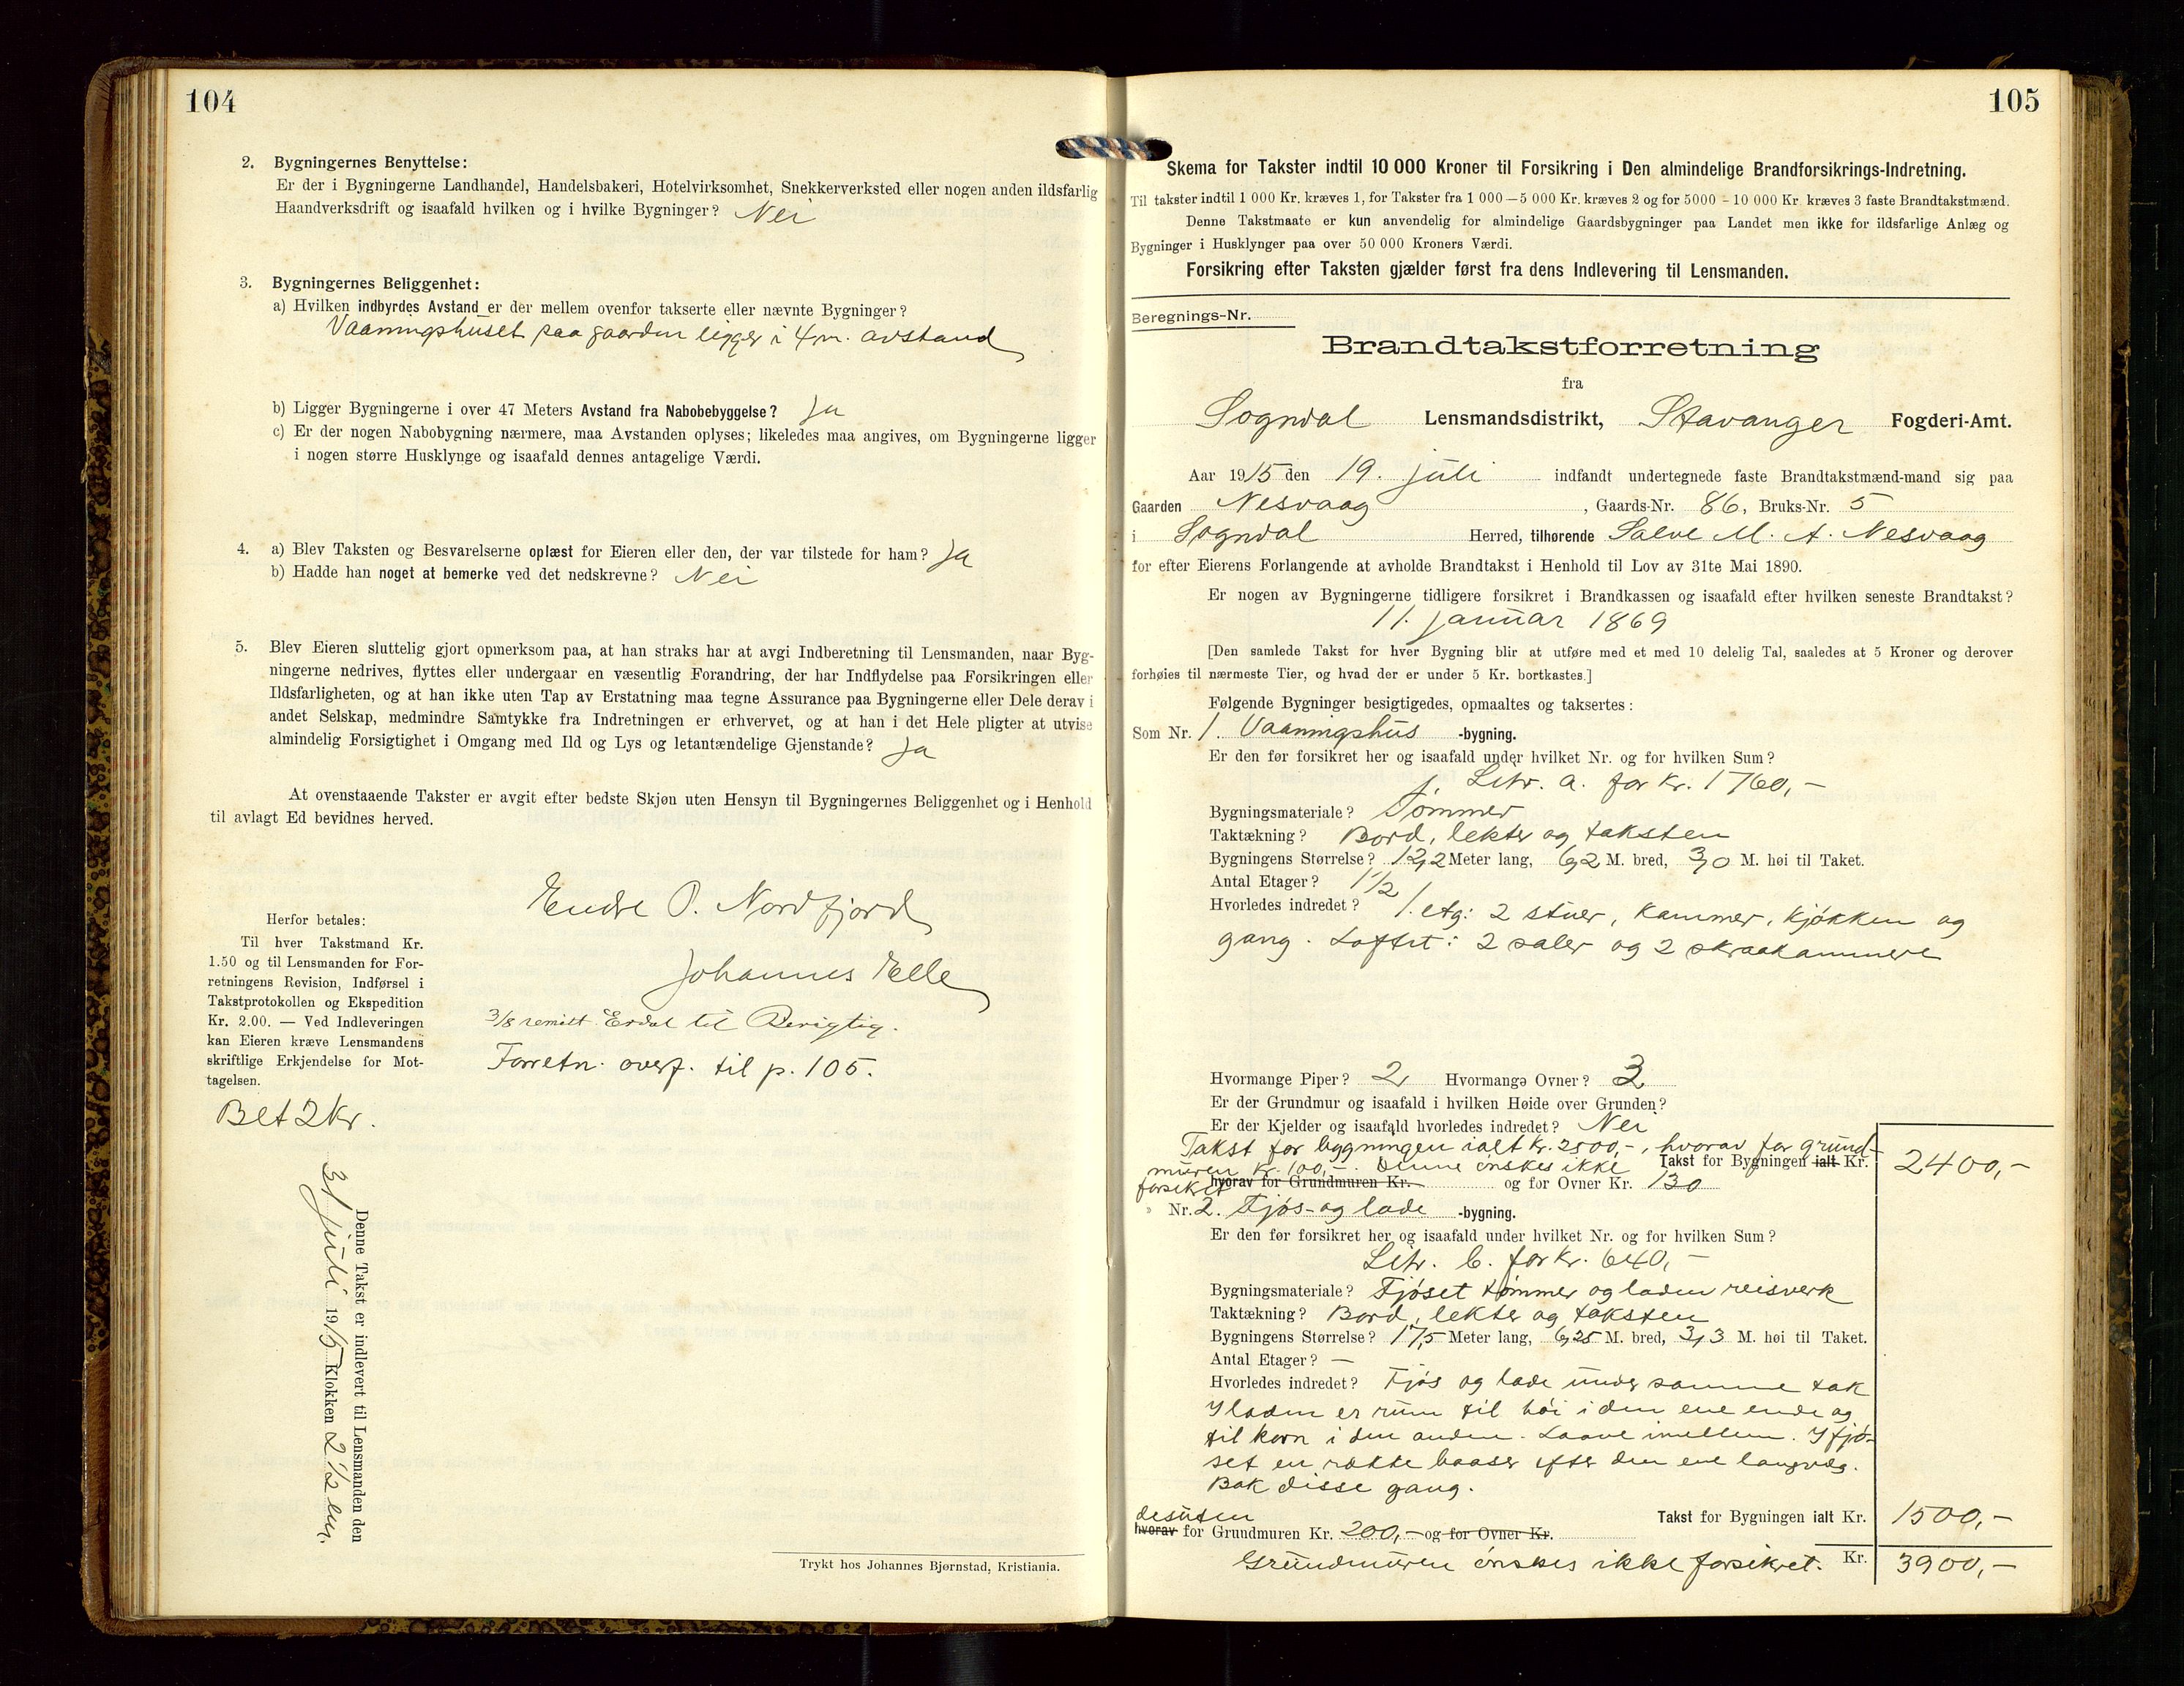 104
2. Bygningernes Benyttelse:
Er der i Bygningerne Landhandel, Handelsbakeri, Hotelvirksomhet, Snekkerverksted eller nogen anden ildsfarlig
Haandverksdrift og isaafald hvilken og i hvilke Bygninger? Nei
3. Bygningernes Beliggenhet:
a) Hvilken indbyrdes Avstand er der mellem ovenfor takserte eller nævnte Bygninger?
Vaaningshuset paa gaarden ligger i 4 m. avstand
b) Ligger Bygningerne i over 47 Meters Avstand fra Nabobebyggelse? Ja
c) Er der nogen Nabobygning nærmere, maa Avstanden oplyses; likeledes maa angives, om Bygningerne ligger
i nogen større Husklynge og isaafald dennes antagelige Værdi.
4. a) Blev Taksten og Besvarelserne oplæst for Eieren eller den, der var tilstede for ham? Ja
b) Hadde han noget at bemerke ved det nedskrevne? Nei
5. Blev Eieren sluttelig gjort opmerksom paa, at han straks har at avgi Indberetning til Lensmanden, naar Byg-
ningerne nedrives, flyttes eller undergaar en væsentlig Forandring, der har Indflydelse paa Forsikringen eller
Ildsfarligheten, og at han ikke uten Tap av Erstatning maa tegne Assurance paa Bygningerne eller Dele derav i
andet Selskap, medmindre Samtykke fra Indretningen er erhvervet, og at han i det Hele pligter at utvise
almindelig Forsigtighet i Omgang med Ild og Lys og letantændelige Gjenstande? Ja
At ovenstaaende Takster er avgit efter bedste Skjøn uten Hensyn til Bygningernes Beliggenhet og i Henhold
til avlagt Ed bevidnes herved.
Endre P. Nordfjord
Johannes Elle
3/8 remitt. Erdal til Berigtig.
Forretn. overf. til p. 105.
Herfor betales:
Til hver Takstmand Kr.
1.50 og til Lensmanden for For-
retningens Revision, Indførsel i
Takstprotokollen og Ekspedition
Kr. 2.00. — Ved Indleveringen
kan Eieren kræve Lensmandens
skriftlige Erkjendelse for Mot-
tagelsen.
Bet 2 kr.
Denne Takst er indlevert til Lensmanden den
31 juli 1915 Klokken 2 1/2 em.
Trykt hos Johannes Bjørnstad, Kristiania.
105
Skema for Takster indtil 10 000 Kroner til Forsikring i Den almindelige Brandforsikrings-Indretning.
Til takster indtil 1 000 Kr. kræves 1, for Takster fra 1 000—5 000 Kr. kræves 2 og for 5000 - 10 000 Kr kræves 3 faste Brandtakstmænd.
Denne Takstmaate er kun anvendelig for almindelige Gaardsbygninger paa Landet men ikke for ildsfarlige Anlæg og
Bygninger i Husklynger paa over 50 000 Kroners Værdi.
Forsikring efter Taksten gjælder først fra dens Indlevering til Lensmanden.
Beregnings-Nr.
Brandtakstforretning
fra
Sogndal Lensmandsdistrikt, Stavanger Fogderi-Amt.
Aar 1915 den 19. juli indfandt undertegnede faste Brandtakstmænd-mand sig paa
Gaarden Nesvaag, Gaards-Nr. 86, Bruks-Nr. 5
i Sogndal Herred, tilhørende Salve M. A. Nesvaag
for efter Eierens Forlangende at avholde Brandtakst i Henhold til Lov av 31te Mai 1890.
Er nogen av Bygningerne tidligere forsikret i Brandkassen og isaafald efter hvilken seneste Brandtakst?
11. januar 1869
[Den samlede Takst for hver Bygning blir at utføre med et med 10 delelig Tal, saaledes at 5 Kroner og derover
forhøies til nærmeste Tier, og hvad der er under 5 Kr. bortkastes.]
Følgende Bygninger besigtigedes, opmaaltes og taksertes:
Som Nr. 1. Vaaningshus -bygning.
Er den før forsikret her og isaafald under hvilket Nr. og for hvilken Sum?
Litr. a. for kr. 1760,-
Bygningsmateriale? Tømmer
Taktækning? Bord, lekter og taksten
Bygningens Størrelse? 12,2 Meter lang, 6,2 M. bred, 3,0 M. høi til Taket.
Antal Etager? 1 1/2
Hvorledes indredet? 1. etg: 2 stuer, kammer, kjøkken og
gang. Loftet: 2 saler og 2 skraakammere
Hvormange Piper? 2 Hvormange Ovner? 3
Er der Grundmur og isaafald i hvilken Høide over Grunden?
Er der Kjelder og isaafald hvorledes indredet? Nei
Takst for bygningen ialt kr. 2500,-, hvorav for grund-
muren kr. 100,-. Denne ønskes ikke Takst for Bygningen ialt Kr. 2400,-
forsikret hvorav for Grundmuren Kr. og for Ovner Kr. 130
» Nr. 2. Fjøs- og lade -bygning.
Er den før forsikret her og isaafald under hvilket Nr. og for hvilken Sum?
Litr. b. for kr. 640,-
Bygningsmateriale? Fjøset tømmer og laden reisverk
Taktækning? Bord, lekter og taksten
Bygningens Størrelse? 17,5 Meter lang, 6,25 M. bred, 3,3 M. høi til Taket.
Antal Etager? —
Hvorledes indredet? Fjøs og lade under samme tak
I laden er rum til høi i den ene ende og
til korn i den anden. Laave imellem. I fjø-
set en række baaser efter den ene langvæg.
Bak disse gang.
desuten Takst for Bygningen ialt Kr. 1500,-
hvorav for Grundmuren Kr. 200,- og for Ovner Kr.
Grundmuren ønskes ikke forsikret. Kr. 3900,-